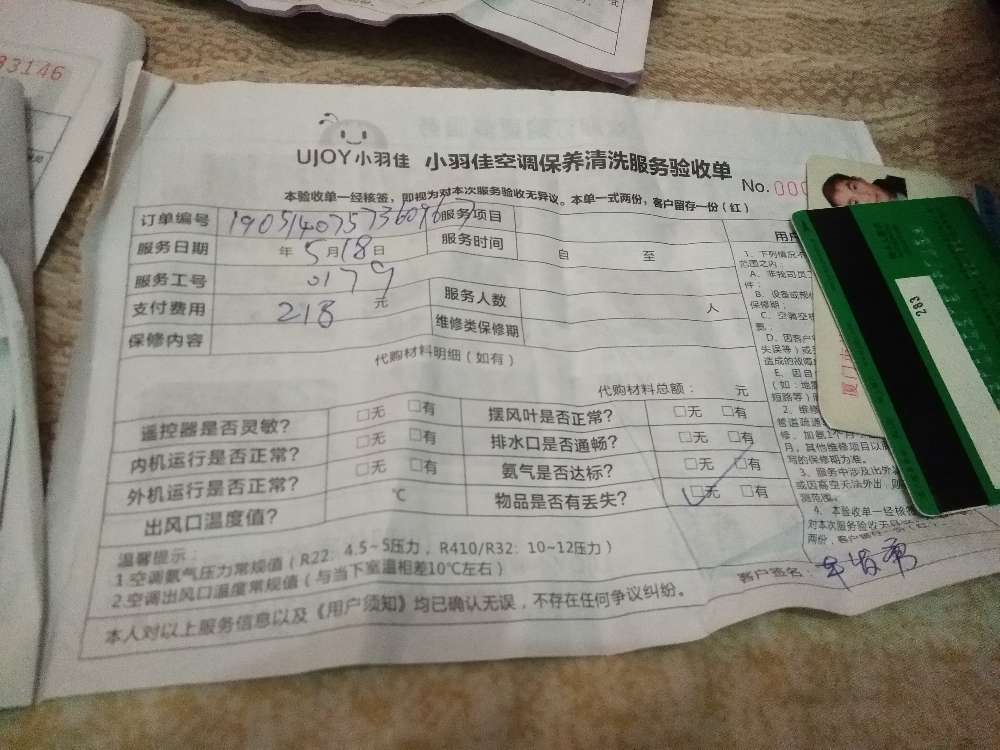 33146
UJOY小羽佳 小羽佳空调保养清洗服务验收单
No. 000
本验收单一经核签，即视为对本次服务验收无异议。本单一式两份，客户留存一份（红）
订单编号 服务项目
服务日期 年 5月18日 服务时间 自 至
服务工号 0179
支付费用 218 元 服务人数 人
保修内容 维修类保修期
代购材料明细（如有）
代购材料总额： 元
遥控器是否灵敏？ □无 □有 摆风叶是否正常？ □无 □有
内机运行是否正常？ □无 □有 排水口是否通畅？ □无 □有
外机运行是否正常？ □无 □有 氨气是否达标？ □无 □有
出风口温度值？ ℃ 物品是否有丢失？ ☑无 □有
温馨提示：
1.空调氨气压力常规值（R22：4.5~5压力，R410/R32：10~12压力）
2.空调出风口温度常规值（与当下室温相差10℃左右）
本人对以上服务信息以及《用户须知》均已确认无误，不存在任何争议纠纷。
客户签名：
用户
1、下列情况不
范围之内
A、非我司员工
件；
B、设备或部件
保修期；
C、空调空
D、因客户
失误等）或
造成的故障
E、因自
（如：地震
短路等）
2、维修
管道疏通
修，加氨1个月
月，其他维修项目以
写的保修期为准。
3、服务中涉及出外
或因高空无法外出，则
测范围。
4、本验收单一经核
对本次服务验收无异
两份，客户留存
厦门
283